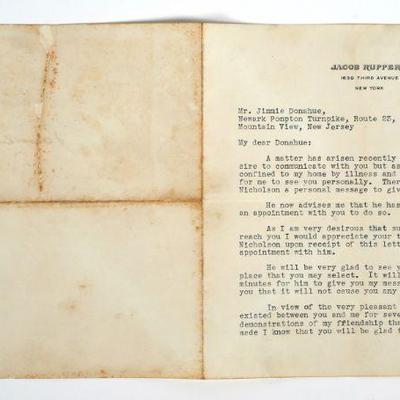 JACOB RUPPER
1639 THIRD AVENUE
NEW YORK
Mr. Jimmie Donahue,
Newark Pompton Turnpike, Route 23,
Mountain View, New Jersey
My dear Donahue:
A matter has arisen recently
sire to communicate with you but as
confined to my home by illness and
for me to see you personally. Ther
Nicholson a personal message to giv
He now advises me that he has
an appointment with you to do so.
As I am very desirous that su
reach you I would appreciate your t
Nicholson upon receipt of this lett
appointment with him.
He will be very glad to see yo
place that you may select. It will
minutes for him to give you my mess
you that it will not cause you any
In view of the very pleasant
existed between you and me for seve
demonstrations of my friendship tha
made I know that you will be glad t